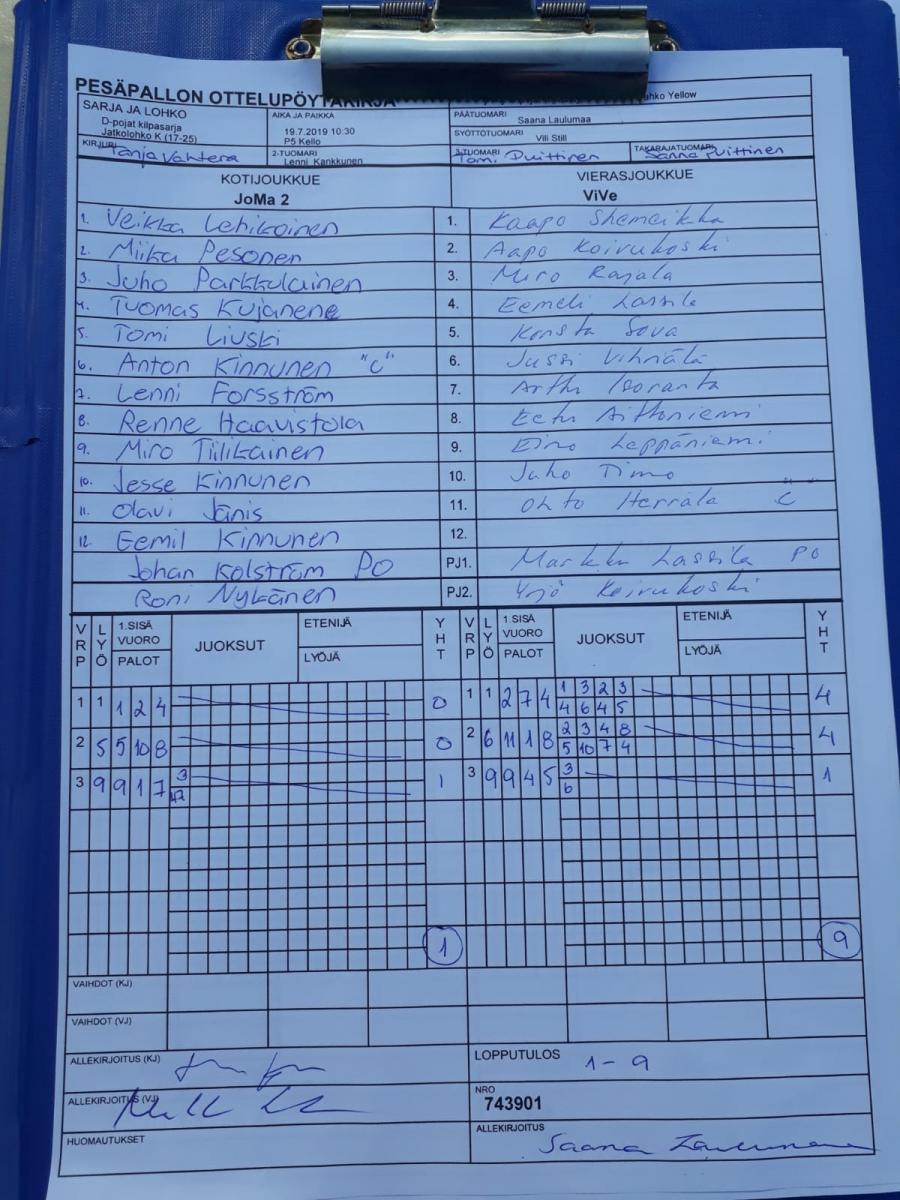 PESÄPALLON OTTELUPÖYTÄKIRJA
SARJA JA LOHKO
D-pojat kilpasarja
Jatkolohko K (17-25)
AIKA JA PAIKKA
19.7.2019 10:30
P5 Kello
Lohko Yellow
PÄÄTUOMARI
Saana Laulumaa
SYÖTTÖTUOMARI
Vili Still
KIRJURI Tanja Vahtera
2-TUOMARI
Lenni Kankkunen
3-TUOMARI Tomi Puittinen
TAKARAJATUOMARI Sanna Puittinen
KOTIJOUKKUE
JoMa 2
VIERASJOUKKUE
ViVe
1. Veikka Lehikoinen 1. Kaapo Shemeikka
2. Miika Pesonen 2. Aapo Koivukoski
3. Juho Parkkulainen 3. Miro Rajala
4. Tuomas Kujanene 4. Eemeli Lassila
5. Tomi Liuski 5. Konsta Sova
6. Anton Kinnunen "C" 6. Jussi Vihriälä
7. Lenni Forsström 7. Arttu Isoranta
8. Renne Haavistola 8. Eetu Aittoniemi
9. Miro Tiilikainen 9. Eino Leppäniemi
10. Jesse Kinnunen 10. Juho Timo
11. Olavi Jänis 11. Ohto Herrala "C"
12. Eemil Kinnunen 12.
Johan Kolström PO PJ1. Markku Lassila PO
Roni Nykänen PJ2. Yrjö Koivukoski
VRP LYÖ 1.SISÄ VUORO PALOT JUOKSUT ETENIJÄ LYÖJÄ YHT VRP LYÖ 1.SISÄ VUORO PALOT JUOKSUT ETENIJÄ LYÖJÄ YHT
1 1 1 2 4 0 1 1 2 7 4 1 3 2 3 4
4 6 4 5
2 5 5 10 8 0 2 6 11 1 8 2 3 4 8 4
5 10 7 4
3 9 9 1 7 3 1 3 9 9 4 5 3 1
6
1 9
VAIHDOT (KJ)
VAIHDOT (VJ)
ALLEKIRJOITUS (KJ)
LOPPUTULOS
1-9
ALLEKIRJOITUS (VJ)
NRO
743901
HUOMAUTUKSET
ALLEKIRJOITUS
Saana Laulumaa